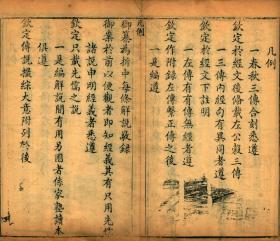 凡例
一春秋三傳合刻悉遵
欽定於經文後條載左公穀三傳
一三傳內經句有異同者遵
欽定於經文下註明
一左傳有傳無經者遵
欽定作附錄左傳繫三傳之後
一是編遵
凡例
御纂為折中每條解說敬錄
御案於前以便觀者即知經義其有只用先
諸說申明經義者悉遵
欽定只載先儒之說
一是編解說間有用另圈者係家塾讀本
俱遵
欽定傳說撮綜大意附列於後